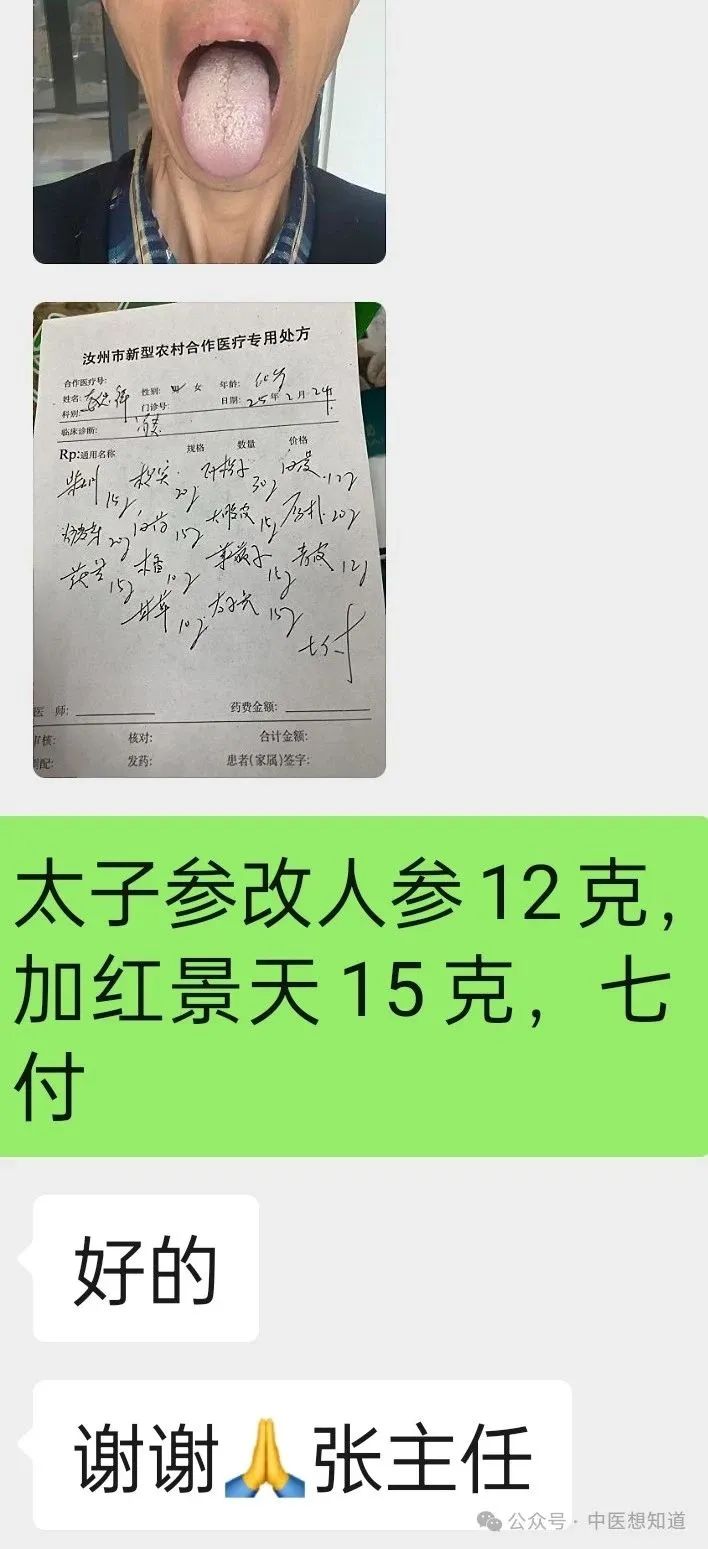 汝州市新型农村合作医疗专用处方
合作医疗号:
姓名: 性别: 男 女 年龄: 60岁
科别: 门诊号: 日期: 25年2月24
临床诊断: 胃炎
Rp:通用名称 规格 数量 价格
柴胡 15g 枳实 20g 30g 12g
20g 白芍 15g 大腹皮 15g 厚朴 20g
莪术 15g 木香 10g 莱菔子 15g 青皮 12g
甘草 10g 太子参 15g
七付
医 师: 药费金额:
审核: 核对: 合计金额:
调配: 发药: 患者(家属)签字:
太子参改人参12克,
加红景天15克, 七
付
好的
谢谢🙏张主任
公众号 · 中医想知道